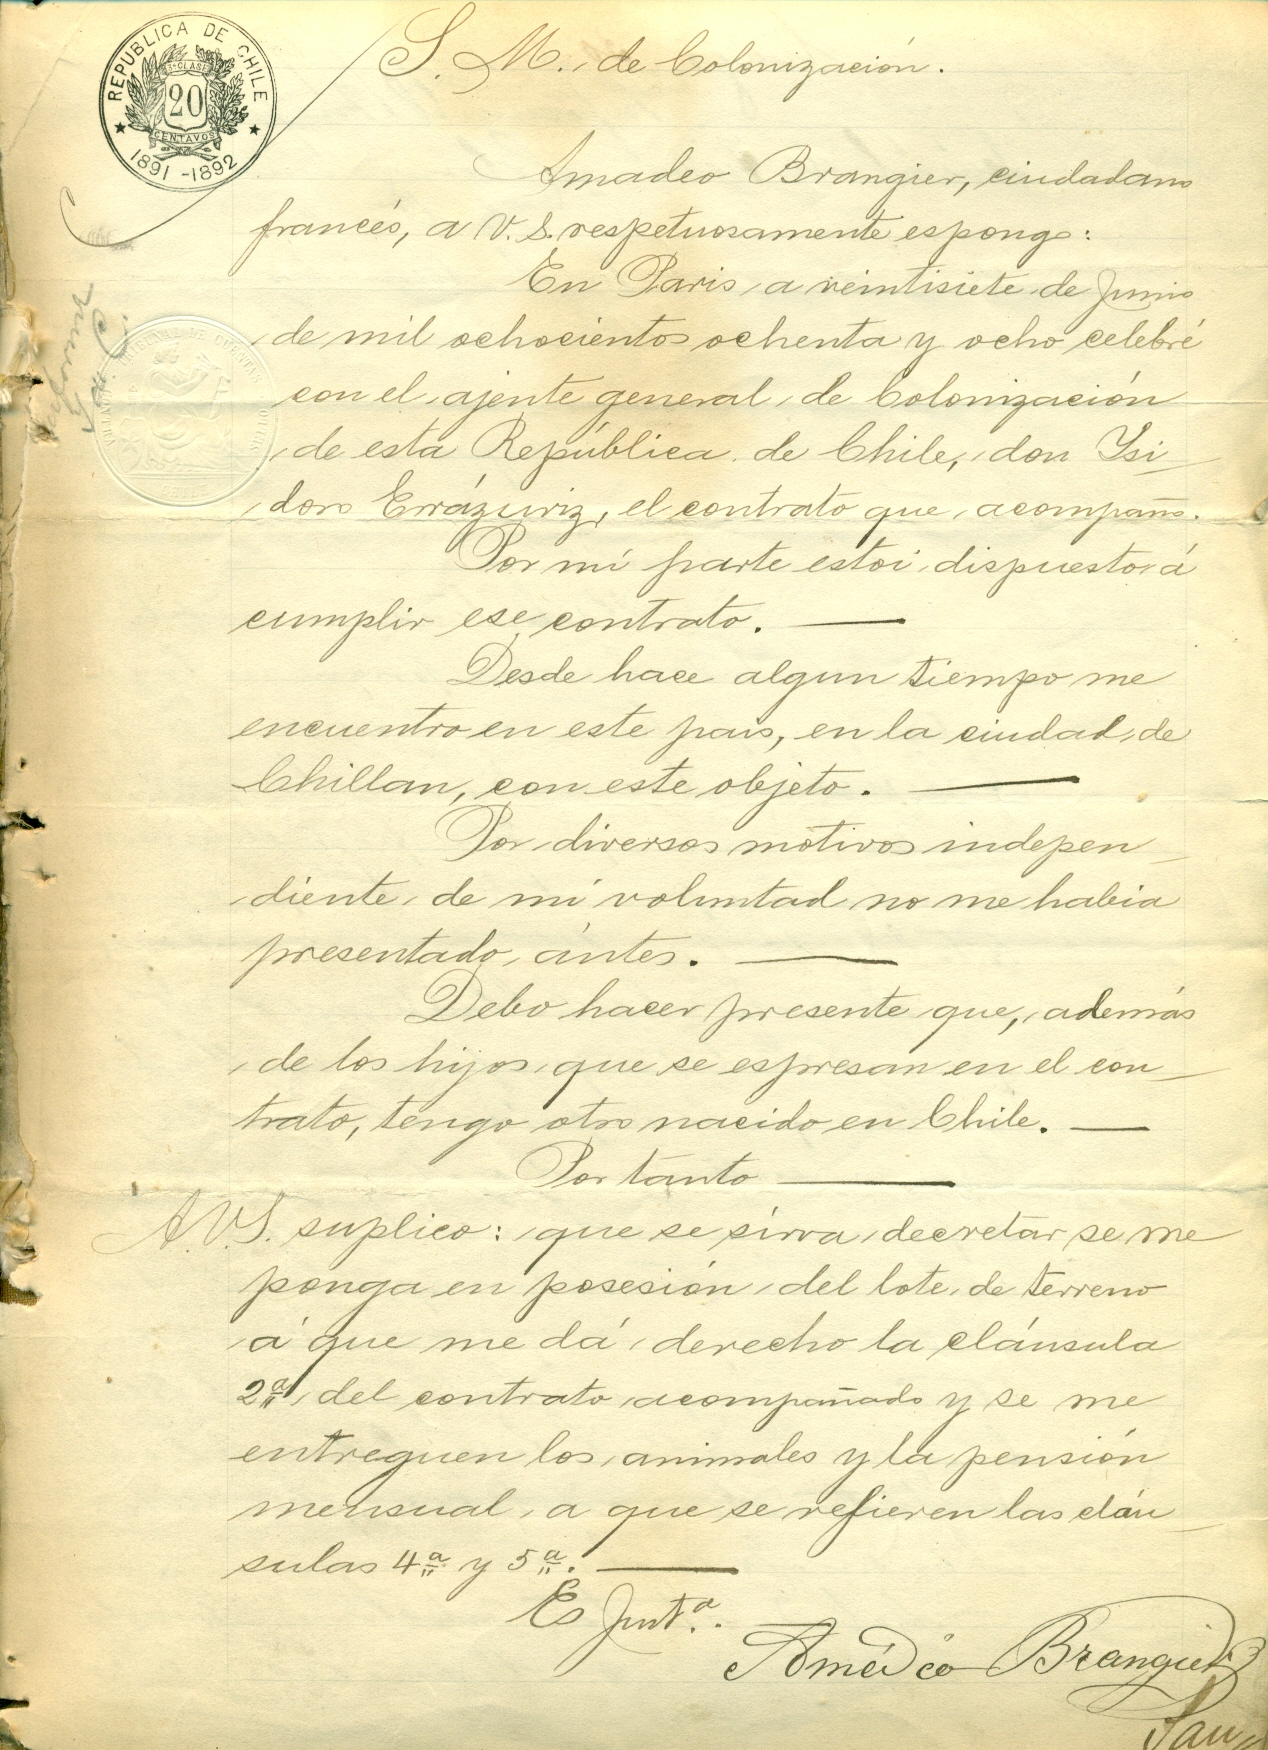 REPUBLICA DE CHILE
3ª CLASE
20
CENTAVOS
1891-1892
S. M. de Colonización.
Amadeo Brangier, ciudadano
francés, a V. S. respetuosamente espongo:
En Paris a veintisiete de Junio
de mil ochocientos ochenta y ocho celebré
con el ajente general de Colonización
de esta República de Chile, don Isi
doro Errázuriz, el contrato que acompaño.
Por mi parte estoi dispuesto á
cumplir ese contrato. —
Desde hace algun tiempo me
encuentro en este pais, en la ciudad de
Chillan, con este objeto. —
Por diversos motivos indepen-
diente de mi voluntad no me habia
presentado ántes. —
Debo hacer presente que, además
de los hijos que se espresan en el con-
trato, tengo otro nacido en Chile. —
Por tanto —
A. V. S. suplico: que se sirva decretar se me
ponga en posesión del lote de terreno
á que me dá derecho la cláusula
2ª del contrato acompañado y se me
entreguen los animales y la pensión
mensual a que se refieren las cláu-
sulas 4ª y 5ª. —
Es Justª.
Amédéo Brangier